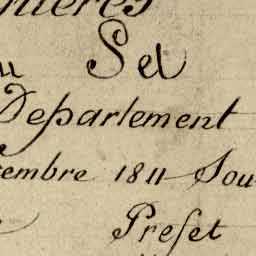 nières
u Sel
Departement
tembre 1811 Sou
Prefet